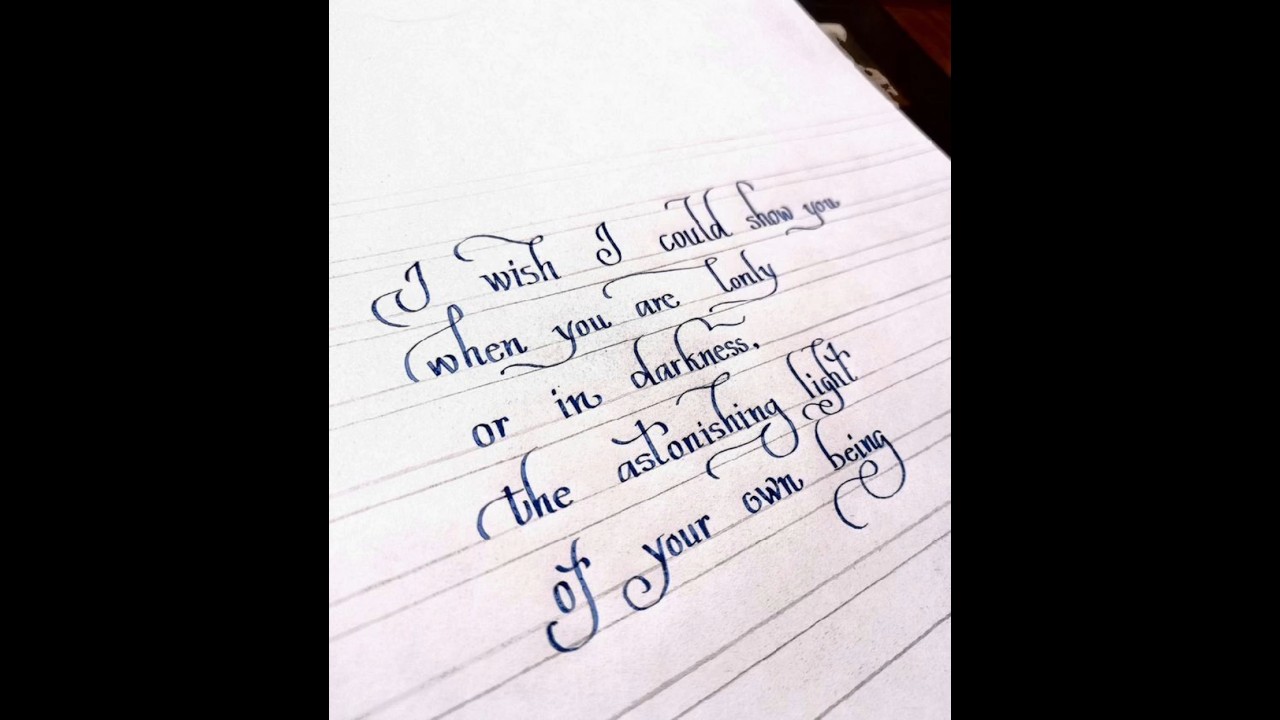 I wish I could show you
when you are lonly
or in darkness.
the astonishing light
of your own being